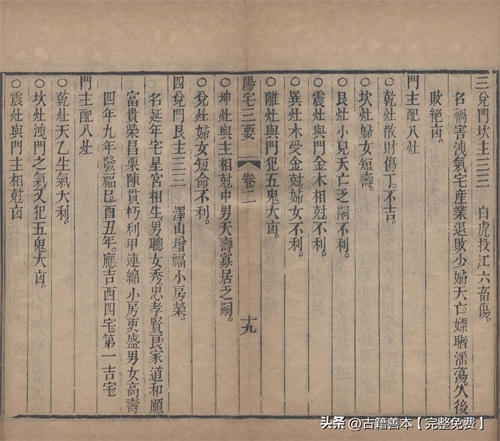 三兌門坎主三三 白虎投江六畜傷。
名禍害洩氣宅產業退敗少婦夭亡嫖賭浪蕩久後
敗絕卤。
門主配八灶
○乾灶散財傷丁。不吉。
○坎灶婦女短壽。
○艮灶小兒夭亡乏嗣不利。
○震灶與門金木相尅不利。
○巽灶木受金尅婦女不利。
○離灶與門犯五鬼大卤。
陽宅三要 卷二 十九
○坤灶與主相尅中男夭壽寡居乏嗣。
○兌灶婦女短命不利。
四兌門艮主三三 澤山增福小房榮。
名延年宅星宮相生男聰女秀忠孝賢良家道和順
富貴榮昌粟陳貫朽利甲連綿小房更盛男女高壽
四年九年發福巳酉丑年。應吉西四宅第一吉宅
門主配八灶
○乾灶天乙生氣大利。
○坎灶洩門之氣又犯五鬼大卤。
○震灶與門主相尅卤
头条 @古籍善本【完整免费】